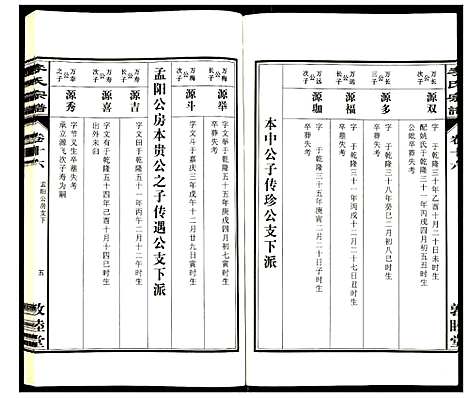 李氏宗谱
卷十六
敦睦堂
万长公次子
源双
字 于乾隆三十年乙酉十月二十日未时生
配姚氏于乾隆三十一年丙戌四月初五丑时生
公妣卒葬失考
万多公三子
源多
字 于乾隆三十八年癸巳二月初八巳时生
卒葬失考
万远公长子
源福
字 于乾隆三十一年丙戌十月十二丑时生
卒葬失考
万远公次子
源珈
字 于乾隆三十五年庚寅二月二十二子时生
卒葬失考
本中公子传珍公支下派
万梅公长子
源举
字文举于乾隆五十五年庚戌四月初七寅时生
卒葬失考
万梅公次子
源斗
字文斗于嘉庆三年戊午十二月廿九日寅时生
卒葬失考
孟阳公房本贵公之子传遇公支下派
万寿公长子
源吉
字文田于乾隆五十一年丙午二月十二午时生
万寿公次子
源喜
字文有于乾隆五十四年己酉十月十四巳时生
出外未归
万吉公之子
源秀
字节又生卒葬失考
承立源弋次子寿为嗣
李氏宗谱
卷十六
孟阳公房支下
五
敦睦堂